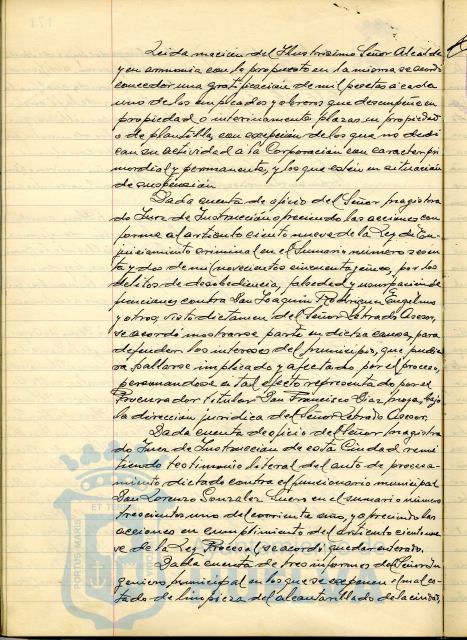 Leida moción del Ilustrísimo Señor Alcalde
y en armonía con lo propuesto en la misma se acordó
conceder una gratificación de mil pesetas a cada
uno de los empleados y obreros que desempeñen en
propiedad o interinamente plazas en propiedad
o de plantilla, con excepción de los que no dedi
can su actividad a la Corporación con caracter pri
mordial y permanente, y los que estén en situación
de suspensión
Dada cuenta de oficio del Señor Magistra
do Juez de Instrucción ofreciendo las acciones con
forme al artículo ciento nueve de la Ley de En
juiciamiento criminal en el Sumario número
ta y dos de mil novecientos cincuenta y cinco, por los
delitos de desobediencia, falsedad y usurpación de
funciones contra Don Joaquín Rodríguez Engelmo
y otros, visto dictamen del Señor Letrado Asesor,
se acordó mostrarse parte en dicha causa, para
defender los intereses del Municipio, que pudie
ra hallarse implicado y afectado por el proceso,
personandose a tal efecto representado por el
Procurador titular Don Francisco Diaz Moya, bajo
la dirección jurídica del Señor Letrado Asesor.
Dada cuenta de oficio del Señor Magistra
do Juez de Instrucción de esta Ciudad remi
tiendo testimonio literal del auto de procesa-
miento, dictado contra el funcionario municipal
Don Lorenzo Gonzalez en el sumario número
trescientos uno del corriente año, y ofreciendo las
acciones en cumplimiento del artículo ciento nue
ve de la Ley Procesal, se acordó quedar enterado.
Dada cuenta de tres informes del Señor In
geniero municipal en los que se exponen el mal es-
tado de limpieza del alcantarillado de la ciudad,
ET TERRAE
PORTUS MARIS